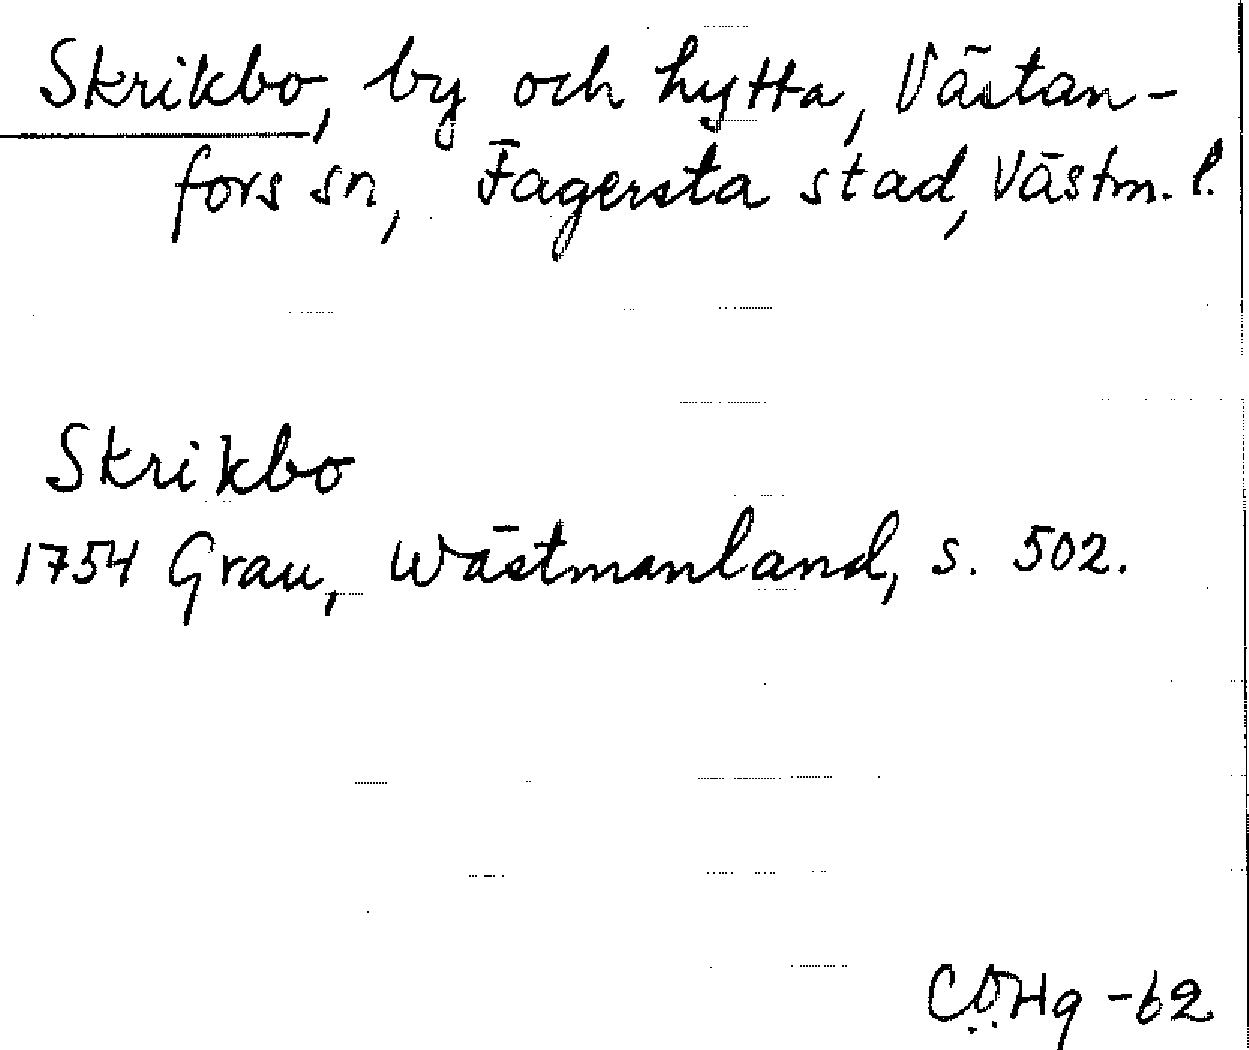 Skrikbo, by och hytta, Västan-
fors sn, Fagersta stad, Västm. l.
Skrikbo
1754 Grau, Wästmanland, s. 502.
-62